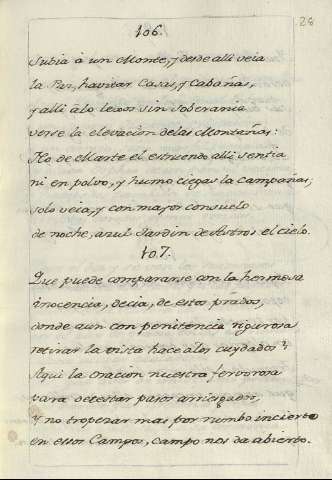 28
106.
Subia à un Monte, y desde alli veia
la Paz, havitar Casas, y Cabañas,
y alli alo lexos sin soberania
verse la elevacion delas Montañas:
No de Marte el estruendo alli sentia
ni en polvo, y humo ciegas la campañas;
solo veia, y con mayor consuelo
de noche, azul Jardin de Astros el cielo.
107.
Que puede compararse con la hermosa
inocencia, decia, de estos prados,
donde aun con penitencia rigurosa
retirar la vista hace alos cuydados?
Aqui la oracion nuestra fervorosa
para detestar pasos arriesgados,
y no tropezar mas por rumbo incierto
en estos Campos, campo nos da abierto.